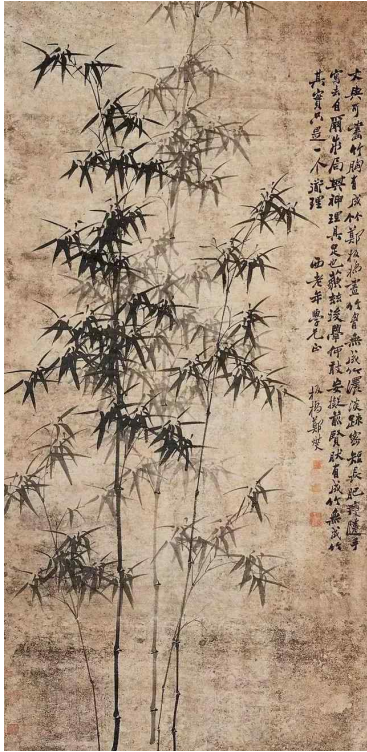 文與可畫竹胸有成竹鄭板橋畫竹胸無成竹濃淡疎密短長肥瘦隨手
寫去自爾成局其神理具足也藐茲後學何敢妄擬前賢然有成竹無成竹
其實只是一个道理 西老年學兄正 板橋鄭燮